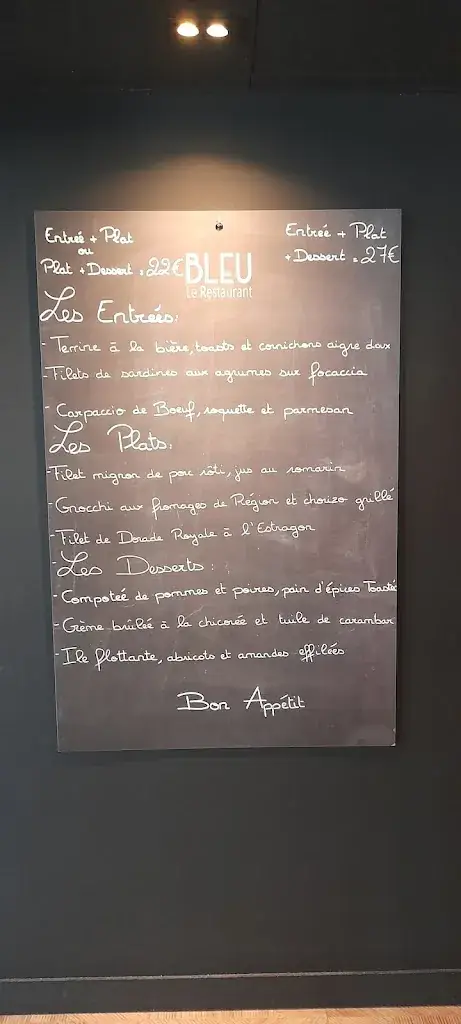 Entreé + Plat
ou
Plat + Dessert = 22€
BLEU
Le Restaurant
Entreé + Plat
+ Dessert = 27€
Les Entreés:
- Terrine à la bière, toasts et cornichons aigre doux
- Filets de sardines aux agrumes sur focaccia
- Carpaccio de Boeuf, roquette et parmesan
Les Plats:
- Filet mignon de porc rôti, jus au romarin
- Gnocchi aux fromages de Région et chorizo grillé
- Filet de Dorade Royale à l'Estragon
- Les Desserts:
- Compoteé de pommes et poires, pain d'épices Toasté
- Crème brûlée à la chicorée et tuile de carambar
- Ile flottante, abricots et amandes effilées
Bon Appétit